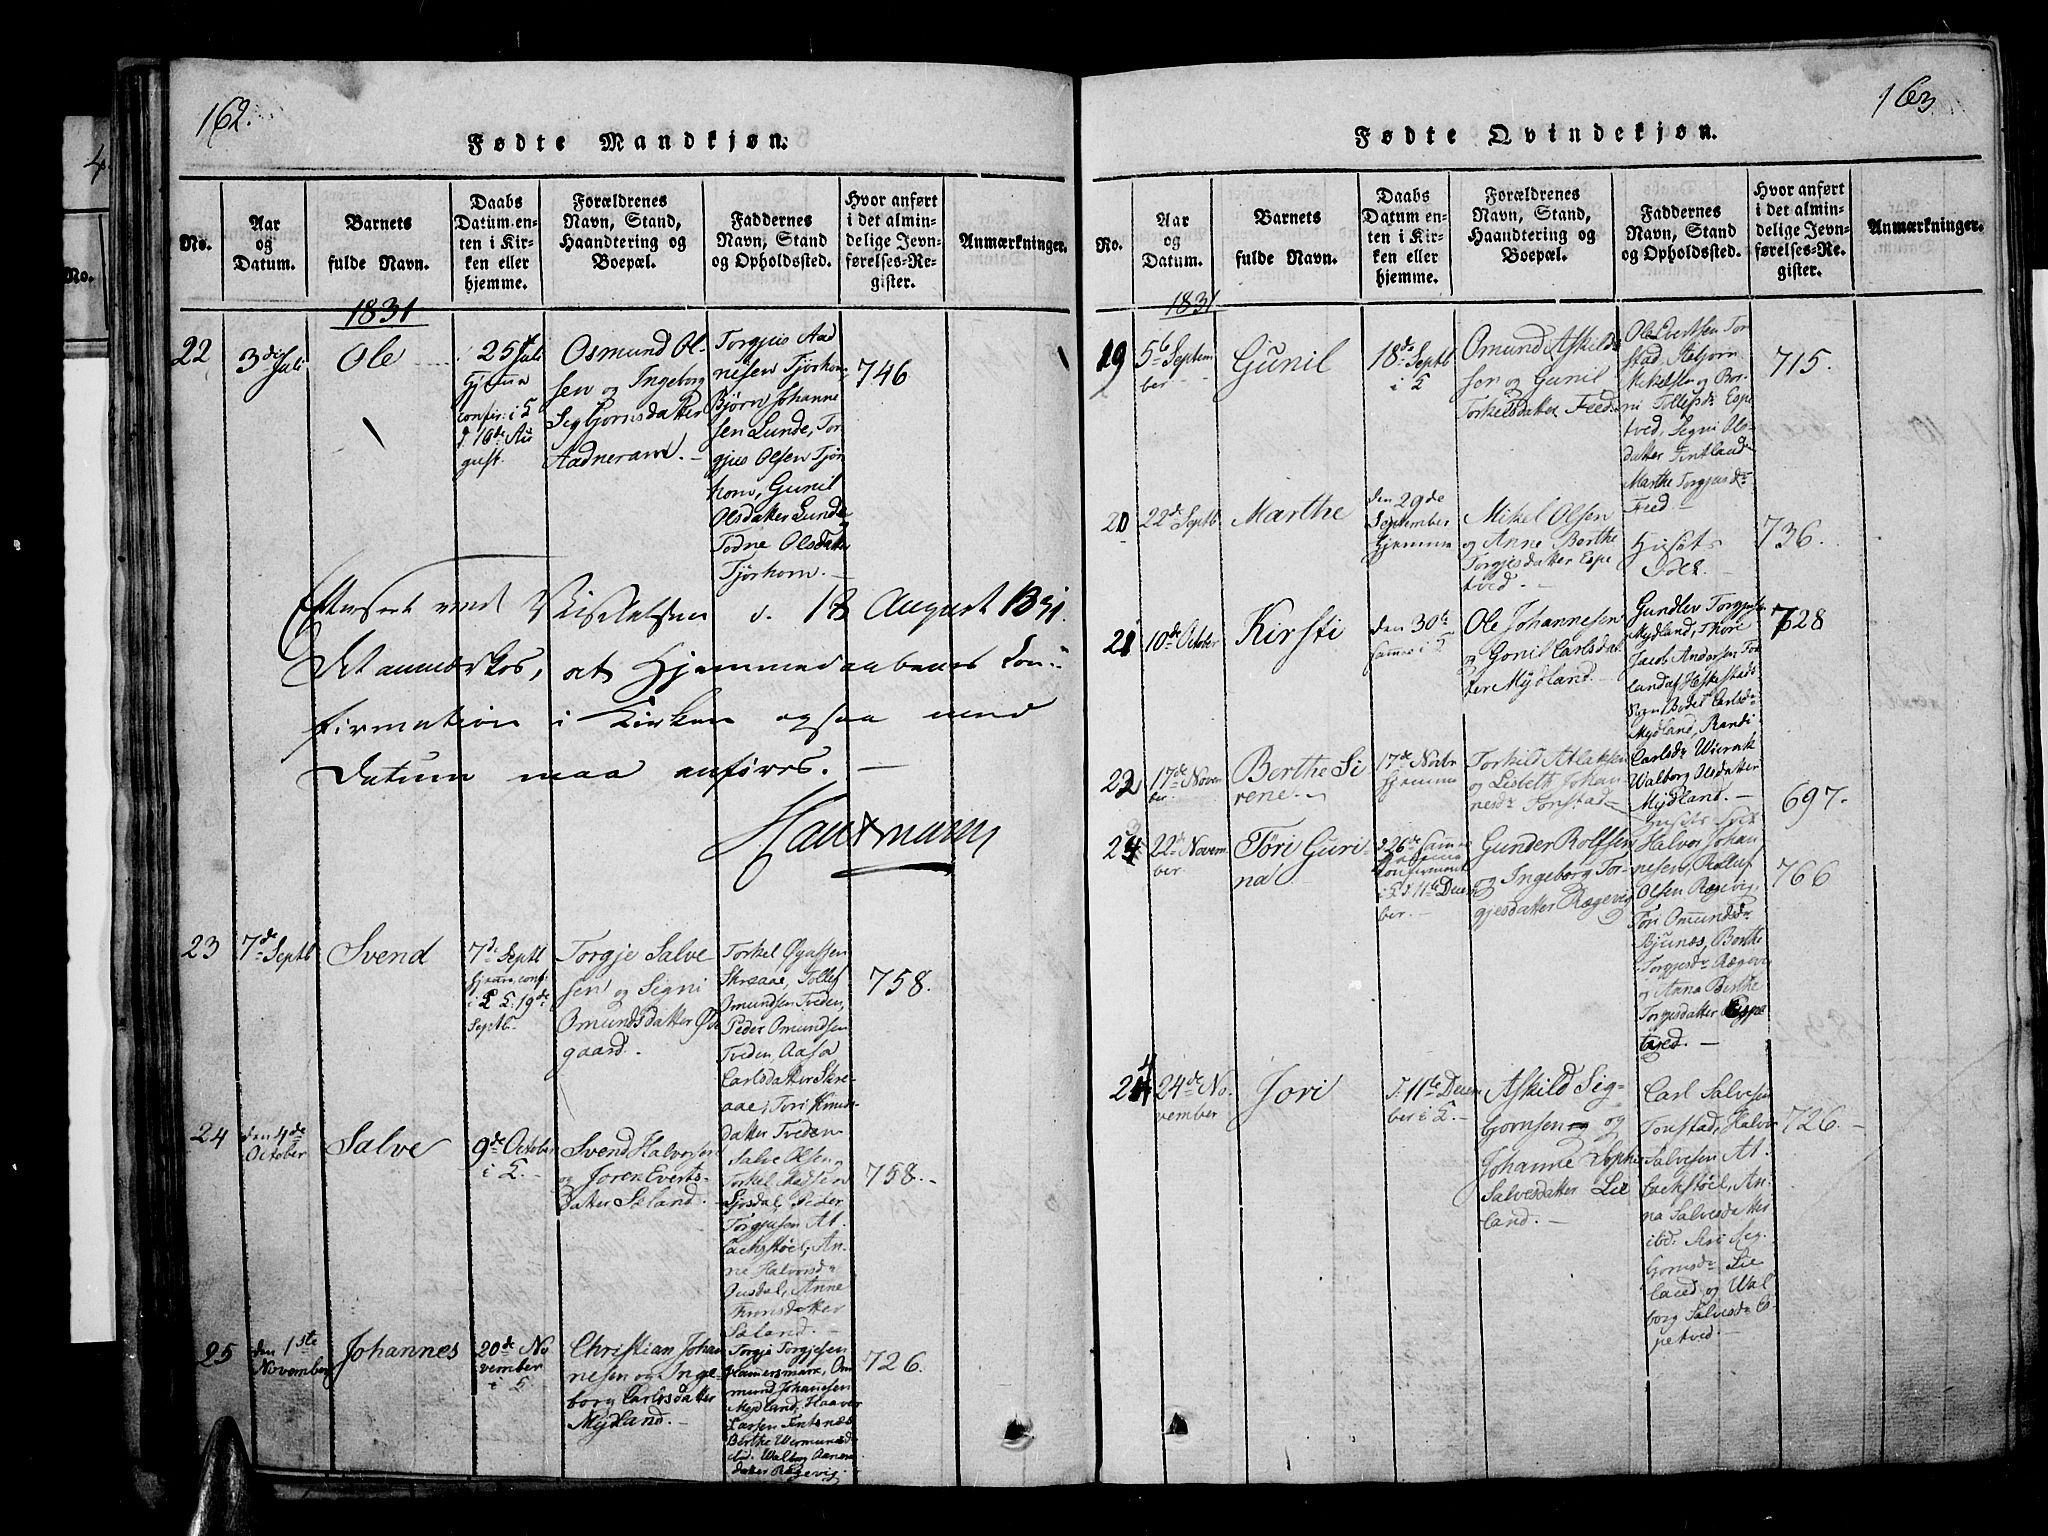 162.
Fødte Mandkjøn.
No.
Aar
og
Datum.
Barnets
fulde Navn.
Daabs
Datum en-
ten i Kir-
ken eller
hjemme.
Forældrenes
Navn, Stand,
Haandtering og
Boepæl.
Faddernes
Navn, Stand
og Opholdssted.
Hvor anført
i det almin-
delige Jevn-
førelses-Re-
gister.
Anmærkninger.
1831
22
3die Juli
Ole
25de Juli
Hjemme
confir: i K
d. 10de Au
gust.
Osmund Ol-
sen og Ingeborg
Segbjornsdatter
Aadneram.
Torgjus Aad
nesen Tjørhom,
Bjørn Johanne
sen Lunde, Tor
gjus Olsen Tjør
hom, Gunil
Olsdatter Lunde
Todne Olsdatter
Tjørhom.
746
ved Visitatsen d. 18 August 1831.
Det anmærkes, at Hjemmedaabenes Con-
firmation i Kirken ogsaa med
Datum maa anføres.
23
7de Septb
Svend
7de Septb
Hjem, conf
i K d. 19de
Septb.
Torgje Salve
sen og Segni
Omundsdatter Øv
gaard.
Torkel Øyassen
Skreaae, Tollef
Omundsen Tveden,
Peder Omundsen
Tveden, Aasa
Carlsdatter Skre-
aae, Tori Knuds
datter Tveden
758.
24
den 4de
October
Salve
9de October
i K.
Svend Halvorsen
og Joren Everts-
datter Saland.
Salve Olsen,
Torkel
Sjosdal, Peder
Torgjusen At-
lackstøel, An-
ne Halvorsdr
Ousdal, Anne
datter
Saland.
758.
25
den 1ste
November
Johannes
20de No
vember
i K
Christian Johan
nesen og Inge-
borg Carlsdatter
Mydland.
Torgje Torgjesen
Hamersmark, Om
mund Johannesen
Mydland, Haaver
Larsen Fintsnæs
Berthe Wermunsd
ibd. Walborg
datter Rægevig.
726.
163
Fødte Qvindekjøn.
No.
Aar
og
Datum.
Barnets
fulde Navn.
Daabs
Datum en-
ten i Kir-
ken eller
hjemme.
Forældrenes
Navn, Stand,
Haandtering og
Boepæl.
Faddernes
Navn, Stand
og Opholdssted.
Hvor anført
i det almin-
delige Jevn-
førelses-Re-
gister.
Anmærkninger.
1831
19
5te Septem
ber
Gunil
18de Septb
i K
Omund Askilds
sen og Gunil
Torkelsdatter Feed.
Ole Evertsen Ton
stad, Asbjorn
Mikelsen og Bor-
ni Tollefsdr Espe
tved, Segni Ols-
datter Fintland
Marthe Torgjusdr
Feed.
715.
20
22de Septb.
Marthe
den 29de
September
Hjemme
Mikel Olsen
og Anne Berthe
Torgjesdatter Espe
tved.
Huset
Folk.
736.
21
10de October
Kirsti
den 30te
samme i K
Ole Johannesen
og Gonil Carlsdat
ter Mydland.
Gundlev Torgjusen
Mydland, Thore
Jacob Andersen Ton
lund af Heskestads
Sogn Bodel Carlsdr
Mydland, Randi
Carlsdr
Walborg Olsdatter
Mydland.
728
22
17de Novem
ber.
Berthe Si
rene.
17de Novbr
Hjemme
Torkild Atlaksen
og Lisbeth Johan
nesdr Tonstad
Husets Folk
697.
23
22de Novem
ber
Töri Guri-
na
26de samme
Hjemme
confirmert
i K d. 11te Decem
ber.
Gunder Rolfsen
og Ingeborg Tor-
gjesdatter Rægevig
Halvor Johan
nesen, Rolluf
Olsen Rægevig,
Töri Omundsdr
Bjunæs, Berthe
Torgjesdr Rægevi
g Anna Berthe
Torgjesdatter Espe
tved.
766
24
24de No
vember
Jori
d. 11te Decem
ber i K.
Askild Sig-
bjornsen og
Johanne Sophie
Salvesdatter Lie
land.
Carl Salvesen
Tonstad, Halvor
Salvesen At-
lackstøel, An-
na Salvesdatter
ibd. Siri Seg-
bjornsdr Lie
land og Wal
borg Salvesdr Es-
petved.
726.